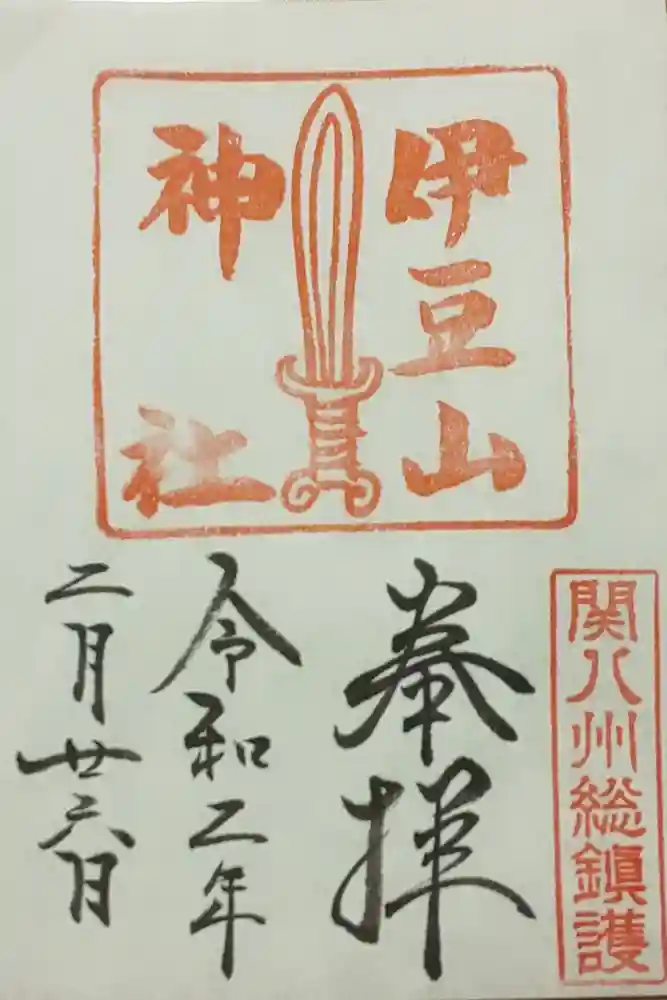 伊豆山
神社
関八州総鎮護
奉拝
令和二年
二月廿六日